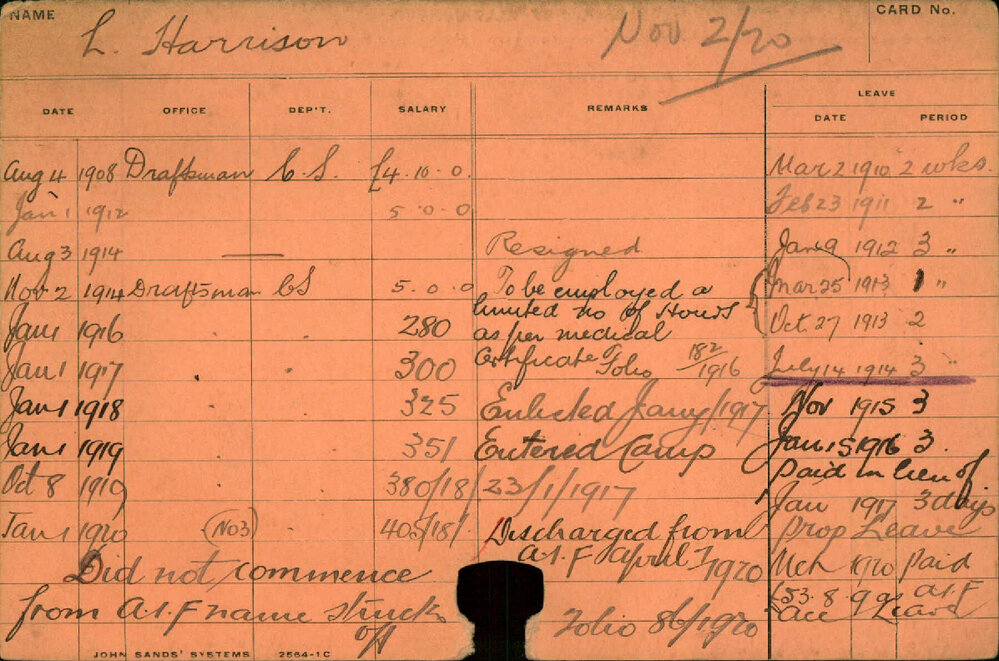 NAME L. Harrison Nov 2/20 CARD No.
DATE OFFICE DEP'T. SALARY REMARKS LEAVE
DATE PERIOD
Aug 4 1908 Draftsman C.S. £4.10.0. Mar 2 1910 2 wks.
Jan 1 1912 5.0.0 Feb 23 1911 2 "
Aug 3 1914 — Resigned Jan 9 1912 3 "
Nov 2 1914 Draftsman CS 5.0.0 To be employed a Mar 25 1913 1 "
limited no of Hours
Jan 1 1916 280 as per medical Oct. 27 1913 2
Jan 1 1917 300 Certificate Folio 182/1916 July 14 1914 3 "
Jan 1 1918 325 Enlisted Jany/1917 Nov 1915 3
Jan 1 1919 351 Entered Camp Jan 15 1916 3.
Oct 8 1919 380/18/ 23/1/1917 Paid in lieu of
Jan 1917 3 days
Jan 1 1920 (No3) 405/18/ Discharged from Prop Leave
A.I.F April 7 1920 Mch 1920 Paid
Did not commence £53.8.9 A.I.F
from A.I.F name struck Acc Leave
off Folio 86/1920
JOHN SANDS' SYSTEMS 2564-1C